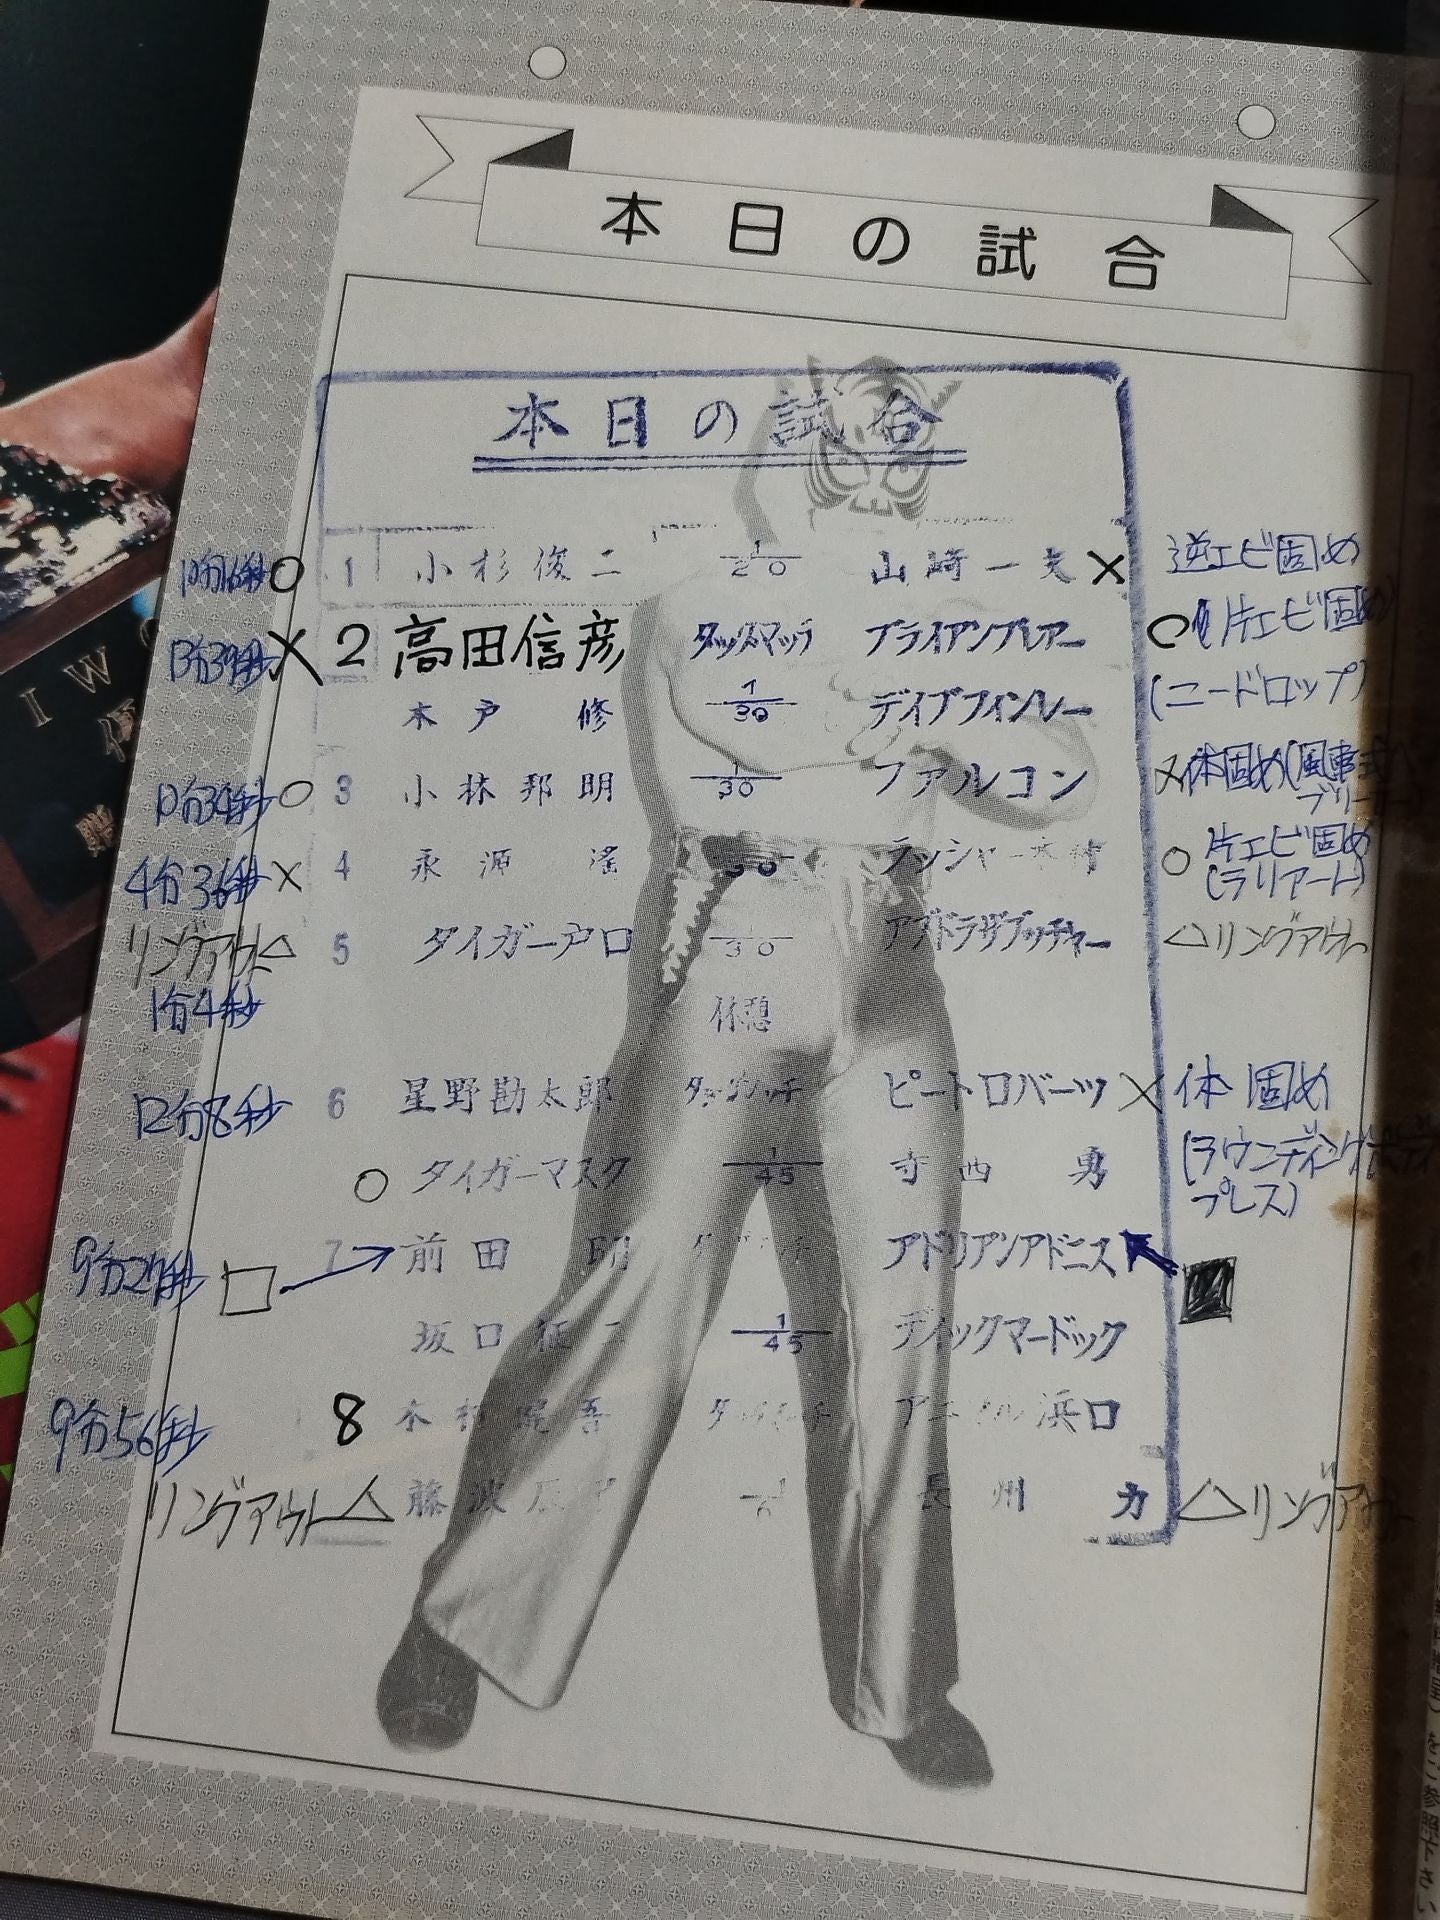 本日の試合
本日の試合
10分16秒 ○ 1 小杉俊二 1/20 山崎一夫 × 逆エビ固め
13分39秒 × 2 高田信彦 タッグマッチ ブライアンブレアー ○ 片エビ固め
木戸修 1/30 デイブフィンレー (ニードロップ)
10分34秒 ○ 3 小林邦明 1/30 ファルコン × 体固め(風車式
ブリーナ)
4分36秒 × 4 永源遙 30 ラッシャー木村 ○ 片エビ固め
(ラリアート)
リングアウト △ 5 タイガー戸口 1/30 アブドラザブッチャー △ リングアウト
1分4秒
休憩
12分8秒 6 星野勘太郎 タッグマッチ ピートロバーツ × 体固め
○ タイガーマスク 1/45 寺西勇 (ラウンディングボディ
プレス)
9分24秒 □ 7 前田明 タッグマッチ アドリアンアドニス ■
坂口征二 1/45 ディックマードック
9分56秒 8 木村健吾 タッグマッチ アニマル浜口
リングアウト △ 藤波辰巳 長州力 △ リングアウト
I W G